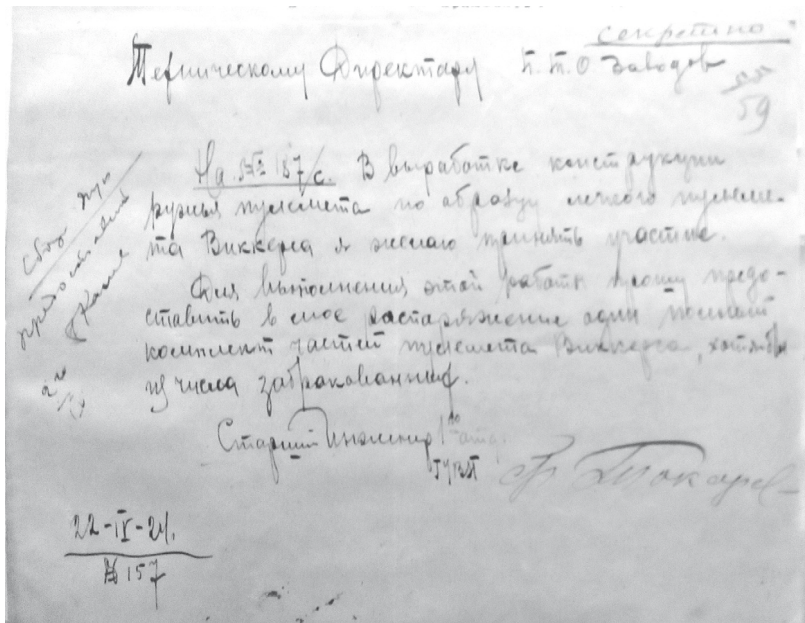 Секретно
Техническому Директору П.Т.О Заводов
59
На № 157/с. В выработке конструкции
ружья пулемета по образцу легкого пулеме-
та Виккерса я желаю принять участие.
Для выполнения этой работы прошу предо-
ставить в мое распоряжение один полный
комплект частей пулемета Виккерса, хотя бы
из числа забракованных.
Старший Инженер 1го отд.
Ф Токарев
22-IV-24.
№ 157